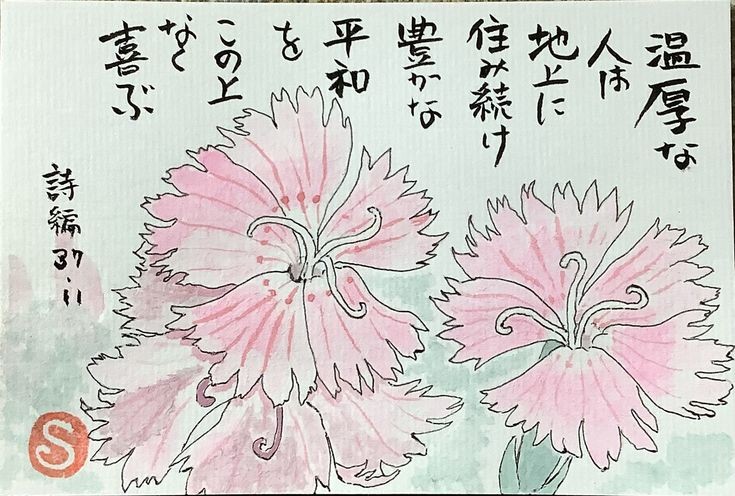 温厚な
人は
地上に
住み続け
豊かな
平和
を
この上
なく
喜ぶ
詩編37:11
S